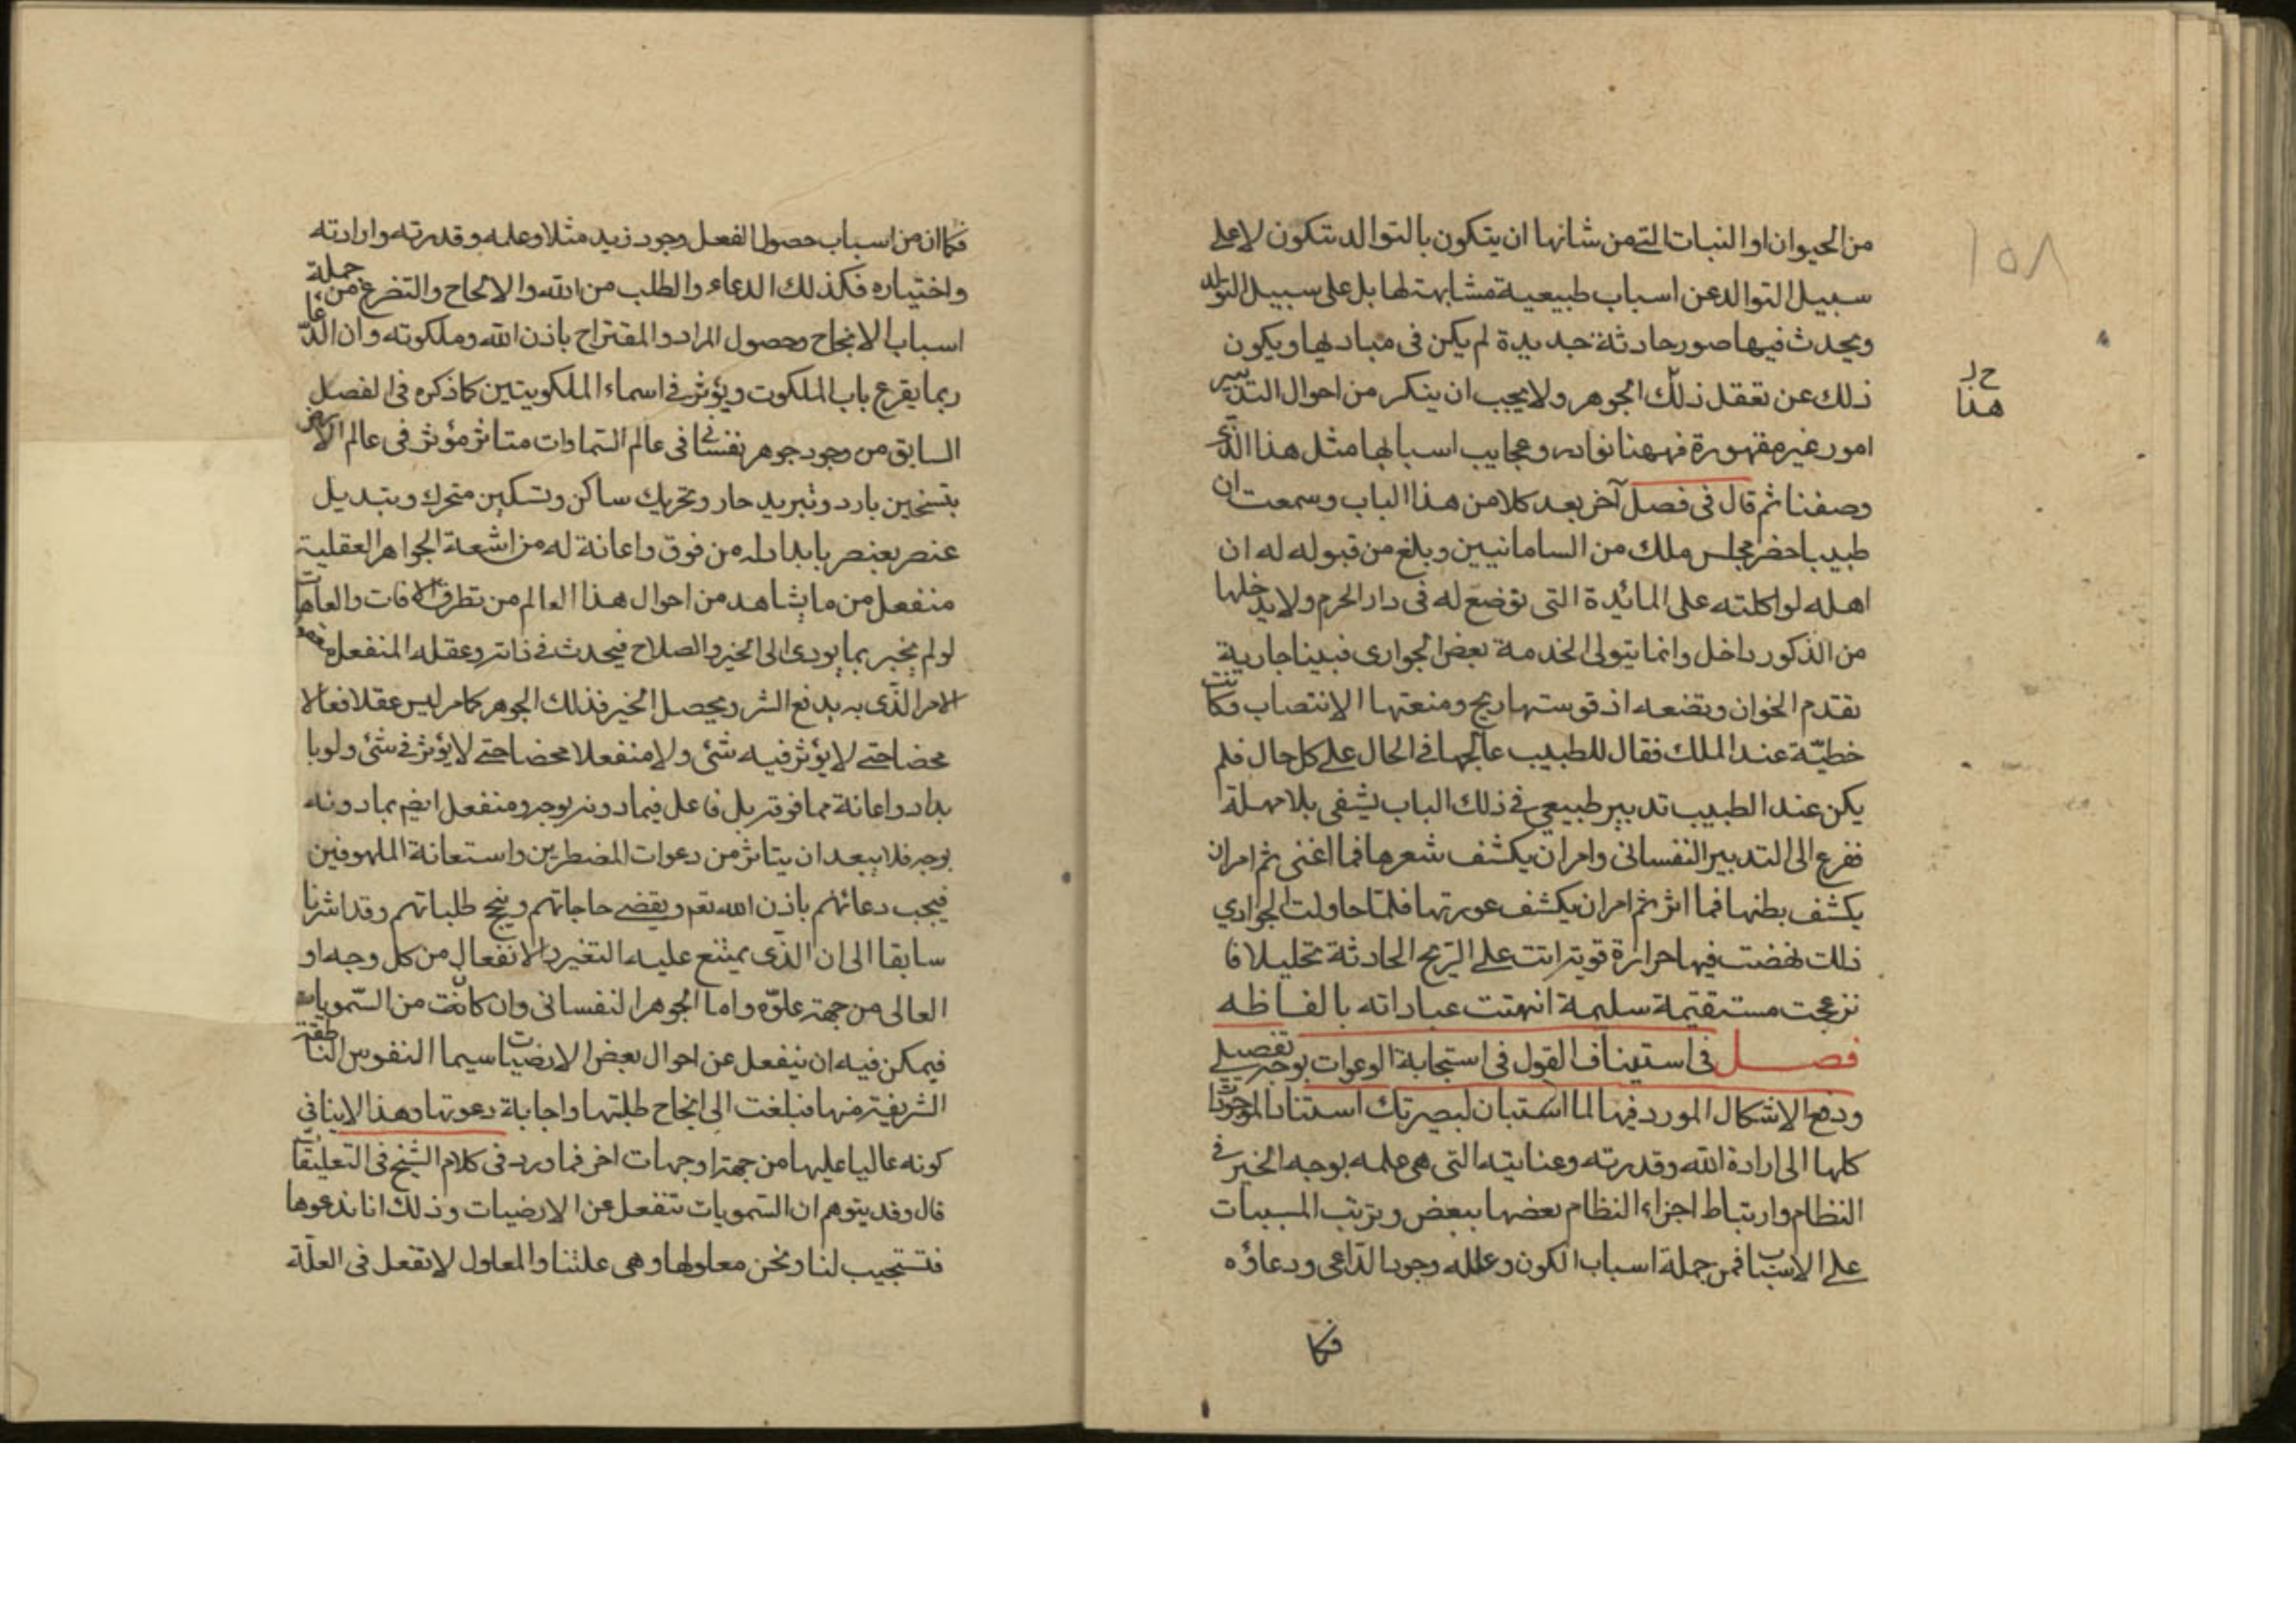 من الحيوان او النبات التے من شانها ان يتكون بالتوالد يتكون لا علے
سبيل التوالد عن اسباب طبيعية مشابهة لها بل على سبيل التولد
ويحدث فيها صور حادثة جديدة لم يكن فى مباديها ويكون
ذلك عن تعقل ذلك الجوهر ولا يجب ان ينكر من احوال التدبير
امور غير مقهورة فههنا نوادر وعجايب اسبابها مثل هذا الذى
وصفنا ثم قال فى فصل آخر بعد كلام من هذا الباب وسمعت ان
طبيبا حضر مجلس ملك من السامانيين وبلغ من قبوله له ان
اهله لواكلته على المائدة التى توضع له فى دار الحرم ولا يدخلها
من الذكور داخل وانما يتولى الخدمة بعض الجوارى فبينا جارية
تقدم الخوان وتضعه اذ قوستها ريح ومنعتها الانتصاب وكانت
خطيّة عند الملك فقال للطبيب عالجها فے الحال علے كل حال فلم
يكن عند الطبيب تدبير طبيعى فے ذلك الباب يشفى بلا مهلة
ففرع الى التدبير النفسانى وامر ان يكشف شعرها فما اغنى ثم امر ان
يكشف بطنها فما اثر ثم امر ان يكشف عورتها فلمّا حاولت الجوارى
ذلك نهضت فيها حرارة قوية اتت علے الريح الحادثة تحليلا فا
نزعجت مستقيمة سليمة انتهت عباداته بالفاظه
فصل فى استيناف القول فى استجابة الدعوات بوجه تفصيلے
ودفع الاشكال المورد فيها لما استبان لبصيرتك استناد الموجودات
كلها الى ارادة الله وقدرته وعنايته التى هى علمه بوجه الخير فے
النظام وارتباط اجزاء النظام بعضها ببعض وترتب المسببات
علے الاسباب فمن جملة اسباب الكون وعلله وجود الدّاعى ودعاؤه
فكا
حد
هذا
١٥٨
فكا ان من اسباب حصول الفعل وجود زيد مثلا وعلمه وقدرته وارادته
واختياره فكذلك الدعاء والطلب من الله والالحاح والتضرع من جملة
اسباب الانجاح وحصول المراد والمقتراح باذن الله وملكوته وان الدّعا
ربما يقرع باب الملكوت ويؤثر فے اسماء الملكوتيين كما ذكره فى الفصل
السابق من وجود جوهر نفسانے فى عالم السّماوات متاثر مؤثر فى عالم الارض
بتسخين بارد وتبريد حار وتحريك ساكن وتسكين متحرك وتبديل
عنصر بعنصر بامداد له من فوق واعانة له من اشعة الجواهر العقلية
منفعل من ما يشاهد من احوال هذا العالم من تطرق الافات والعاهات
لو لم يخبر بما يودى الى الخير والصلاح فيحدث فے ذاته وعقله المنفعل
الامر الذّى به يدفع الشر ويحصل الخير فذلك الجوهر كامر ليس عقلا فعالا
محضا حتے لا يؤثر فيه شئ ولا منفعلا محضا حتے لا يؤثر فے شئ ولو با
مداد واعانة مما فوقه بل فاعل فيما دونه بوجه ومنفعل ايضم بما دونه
بوجه فلا يبعد ان يتاثر من دعوات المضطرين واستعانة الملهوفين
فيجب دعائهم باذن الله تعم ويقضے حاجاتهم وينجح طلباتهم وقد اشرنا
سابقا الى ان الذّى يمتنع عليه التغير والانفعال من كل وجه او
العالى من جهة علوّه واما الجوهر النفسانى وان كانت من السّمويات
فيمكن فيه ان ينفعل عن احوال بعض الارضيات سيما النفوس الناطقة
الشريفة منها فبلغت الى انجاح طلبتها واجابة دعوتها وهذا لا ينافى
كونه عاليا عليها من جهة او جهات اخر فما ورد فى كلام الشيخ فى التعليقات
قال وقد يتوهم ان السّمويات تنفعل عن الارضيات وذلك انا ندعوها
فتستجيب لنا ونحن معلولها وهى علتنا والمعلول لا تفعل فى العلّة